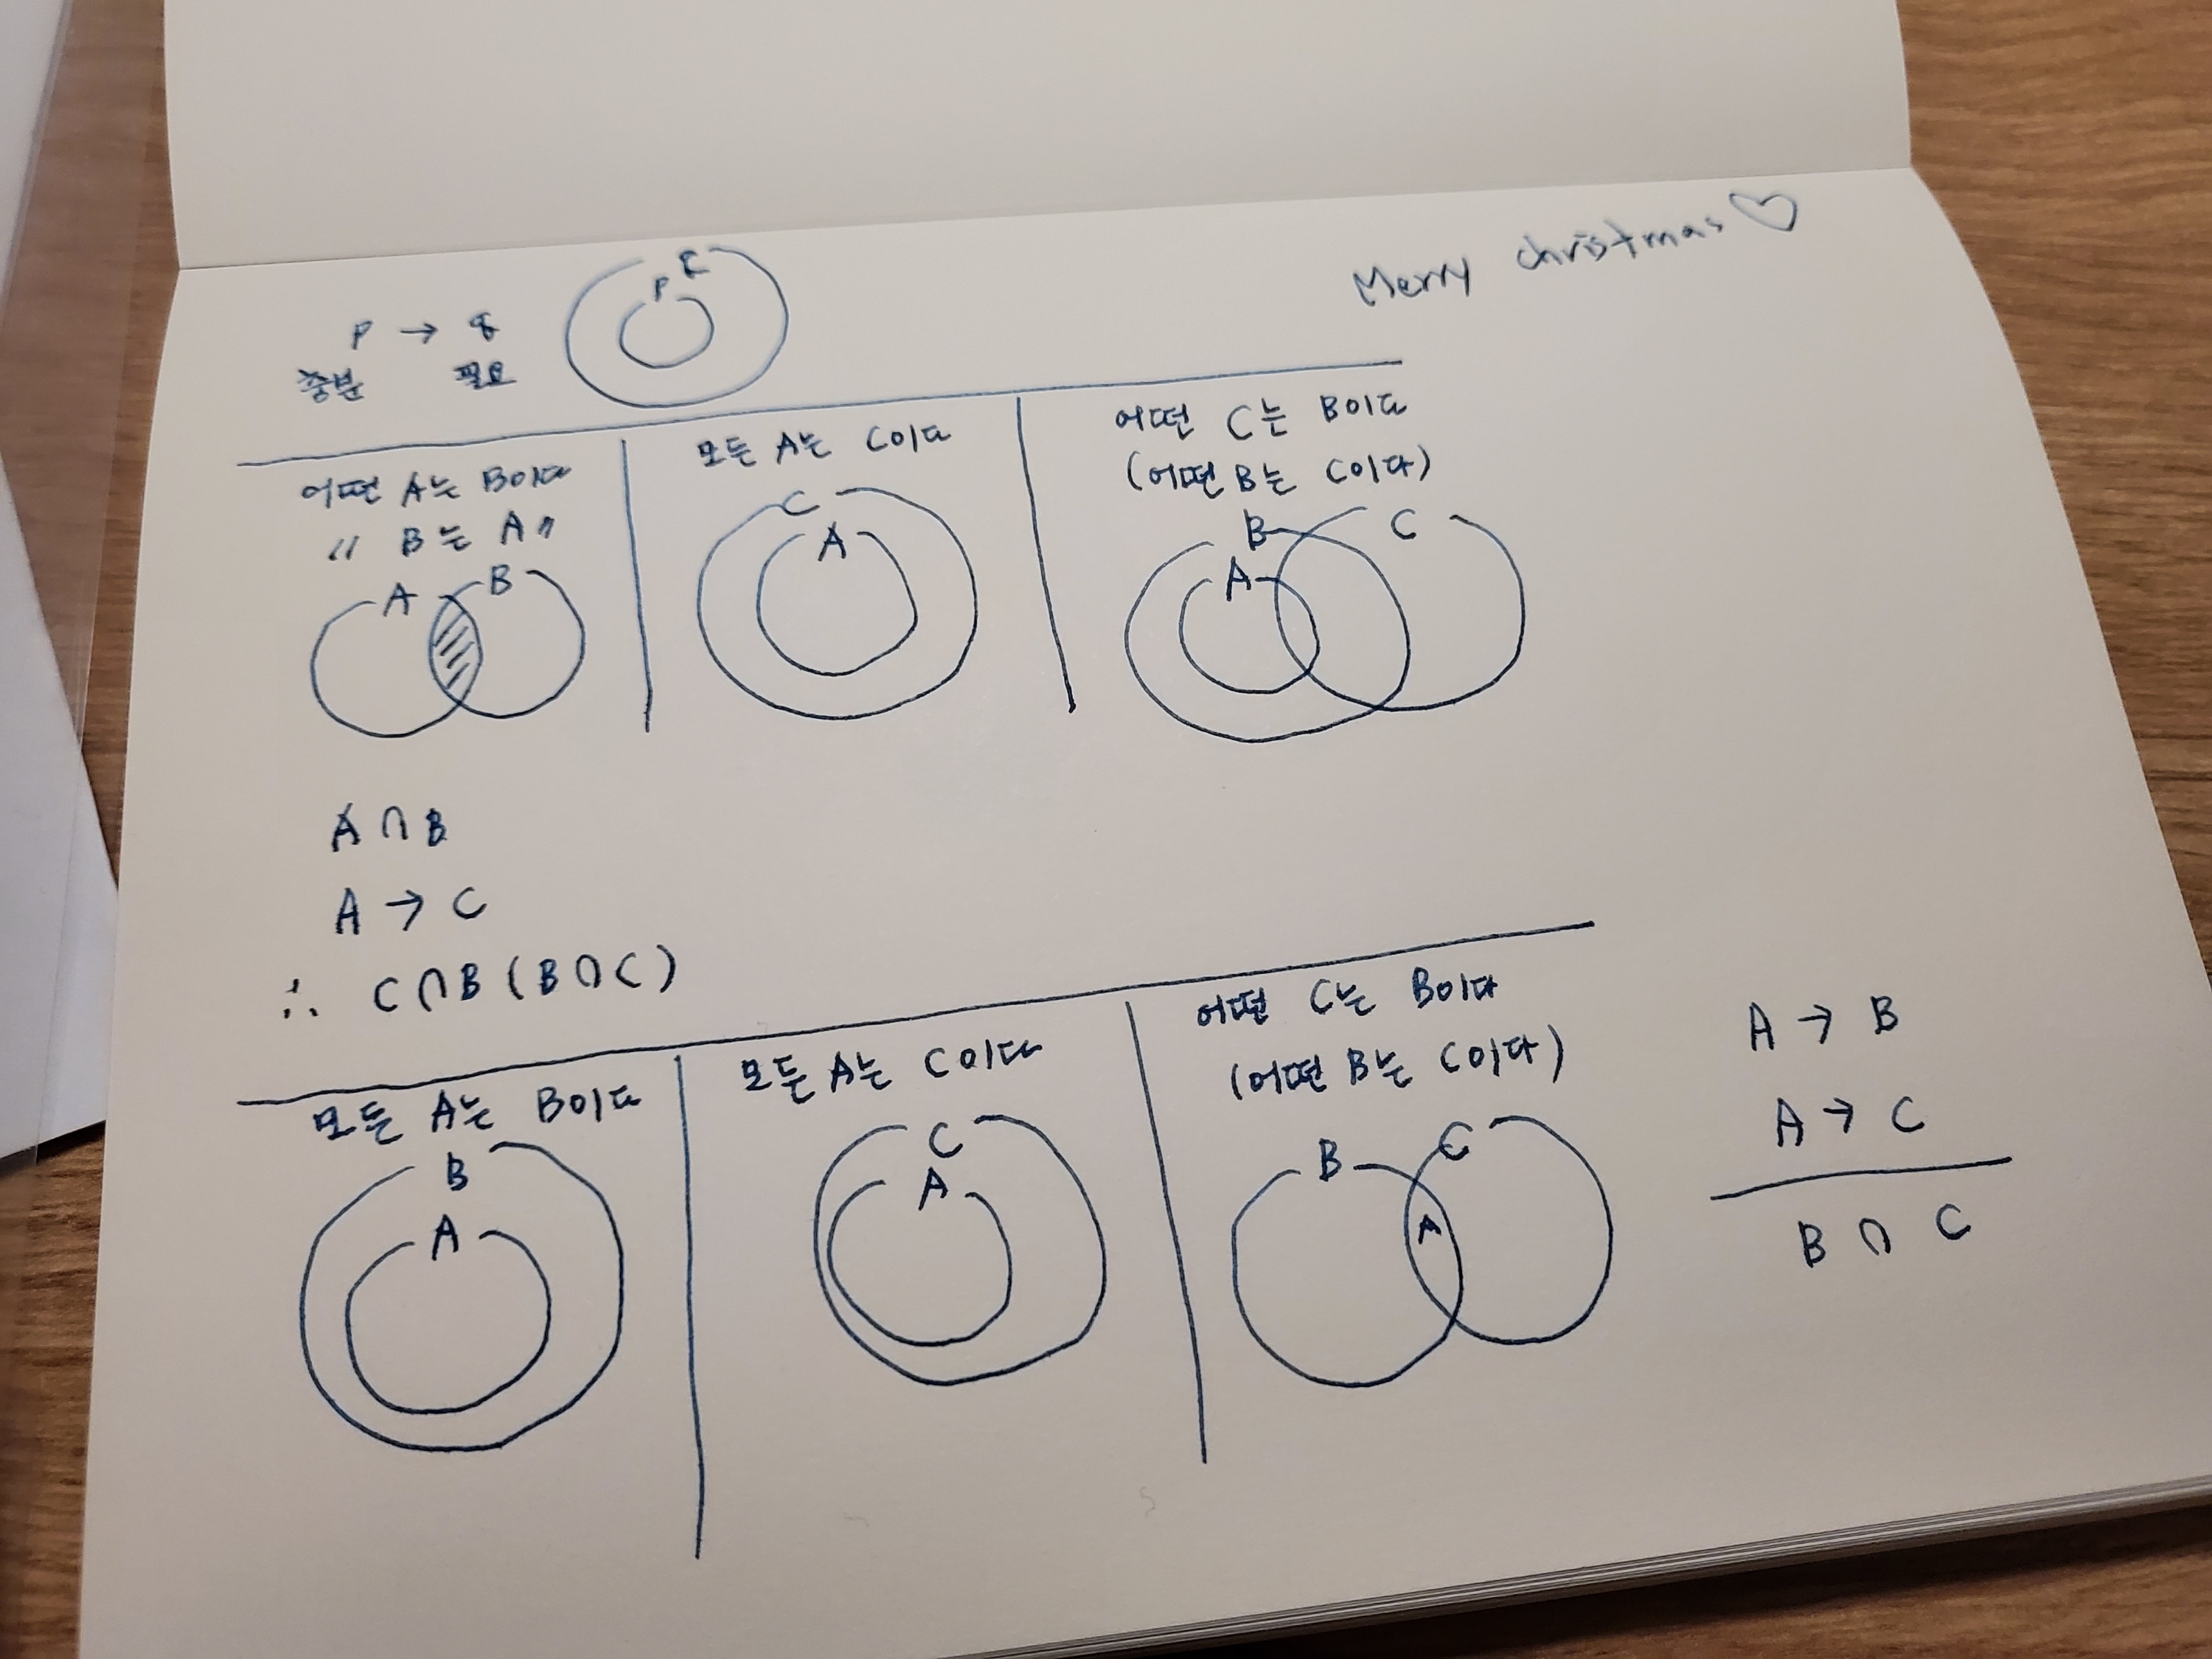 Merry christmas♡
P R
P → q
충분 필요
어떤 A는 B이다
〃 B는 A〃
A B
모든 A는 C이다
C
A
어떤 C는 B이다
(어떤 B는 C이다)
B C
A
A ∩ B
A → C
∴ C ∩ B (B ∩ C)
모든 A는 B이다
B
A
모든 A는 C이다
C
A
어떤 C는 B이다
(어떤 B는 C이다)
B C
A
A → B
A → C
B ∩ C